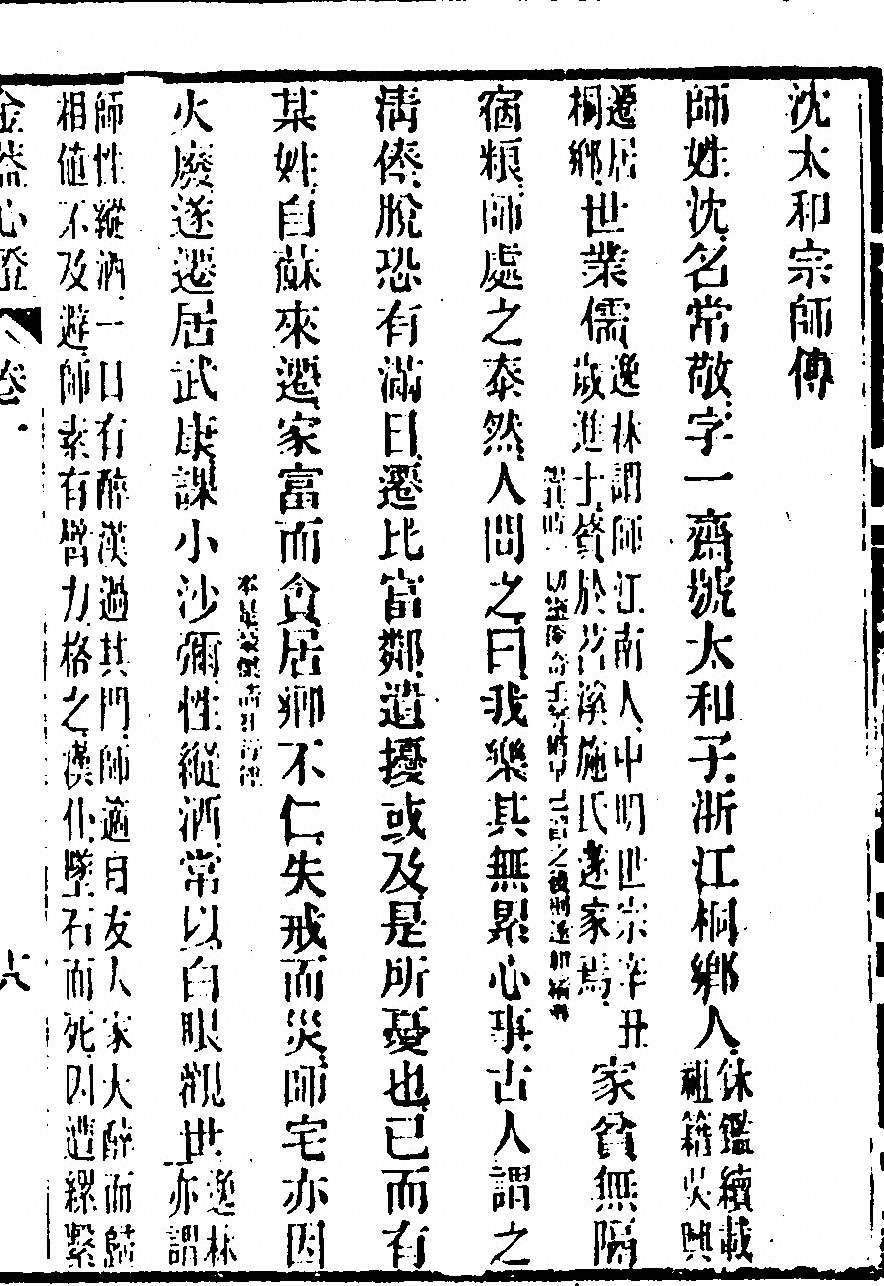 沈太和宗師傳
師姓沈名常敬字一齋號太和子浙江桐鄉人鉢鑑續載祖籍吳興
遷居桐鄉世業儒逸林謂師江南人中明世宗辛丑歲進士贅於苕溪施氏遂家焉家貧無隔
宿粮師處之泰然人問之曰我樂其無累心事古人謂之
清僚脫恐有滿日遷比富鄰遺擾或及是所憂也已而有
某姓自蘇來遷家富而貪居鄉不仁失戒而災師宅亦因
不是
火廢遂遷居武康課小沙彌性縱酒常以白眼觀世逸林亦謂
師性縱酒一日有醉漢過其門師適自友人家大醉而歸
相値不及避師素有臂力格之漢仆墜石而死因遭縲繫
金蓋心燈 卷一 六